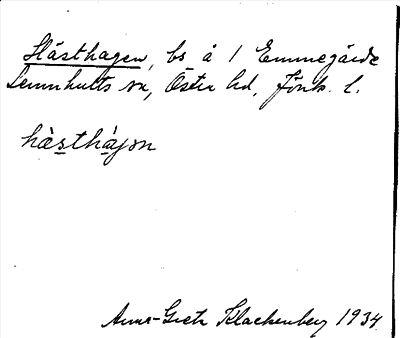 Hästhagen, bs å 1 Emmegärde
Lemnhults sn, Östra hd, Jönk. l.
hæ̀sthájən
Anna-Greta Klackenberg 1934